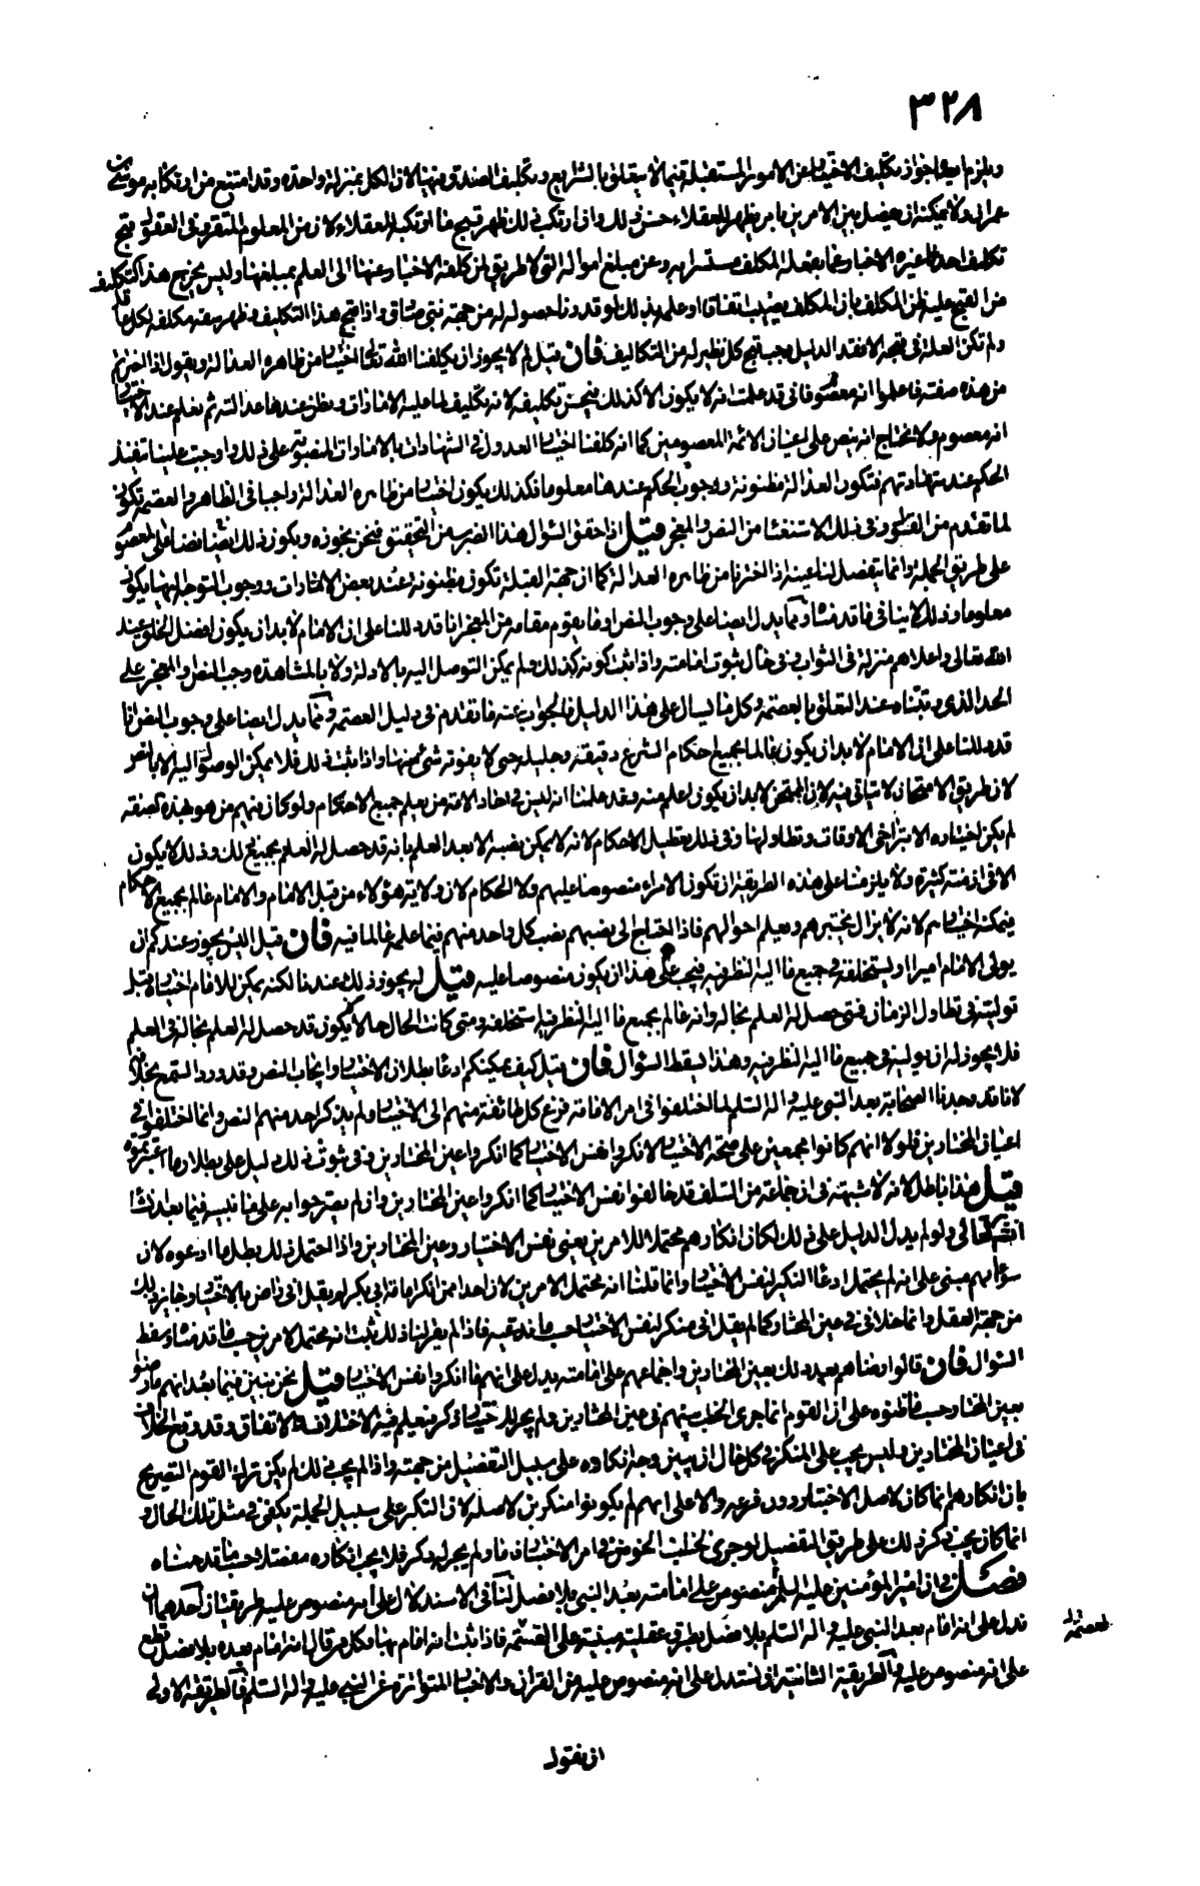 ٣٢٨
ويلزم ايضا جواز تكليف الاختيار عن الامور المستقبلة فيما لا يتعلق بالشرايع وتكليف الصدق فيها لان الكل بمنزلة واحدة وقد امتنع من ارتكابه موسى بن
عمران ولا يمكنه ان يفصل بين الامرين بامر يظهر للعقلاء حسن ذلك واذا ارتكب ذلك ظهر قبح ما ارتكبه للعقلاء لان من المعلوم المتقرر في العقول قبح
تكليف احدنا غيره الاخبار عما يفعله المكلف مستسرا به وعن مبلغ امواله التي لا طريق لمن كلفه الاخبار عنها الى العلم بمبلغها وليس يخرج هذا التكليف
من القبح عليه ظن المكلف بان المكلف يصيب اتفاقا او علمه بذلك لو قدرنا حصوله له من جهة نبي صادق واذا قبح هذا التكليف وظهر سفه مكلفه لكل عاقل
ولم تكن العلة في قبحه الا فقد الدليل وجب قبح كل نظير له من التكاليف فان قيل لم لا يجوز ان يكلفنا الله تعالى اختيار من ظاهره العدالة ويقول اذا اخترتم
من هذه صفته فاعلموا انه معصوم فاني قد علمت انه لا يكون الا كذلك فيحسن تكليفه لانه تكليف لما عليه الامارات ويظن عندها عدالته ثم يعلم عند الاختيار
انه معصوم ولا يحتاج ان ينص على اعيان الائمة المعصومين كما انه كلفنا اختيار العدول في الشهادات بالامارات المنصوبة على ذلك واوجب علينا تنفيذ
الحكم عند شهادتهم فتكون العدالة مظنونة ووجوب الحكم عندها معلوما فكذلك يكون اختيار من ظاهره العدالة واجبا في الظاهر والعصمة تكون
لما تقدم من القول وفي ذلك الاستغناء من النص والمعجز قيل اذا حقق السؤال هذا الضرب من التحقيق فنحن نجوزه ويكون ذلك ايضا نصا على المعصوم
على طريق الجملة وانما يتفصل لنا عينه اذا اخترنا من ظاهره العدالة كما ان جهة القبلة تكون مظنونة عند بعض الامارات ووجوب التوجه اليها يكون
معلوما وذلك لا ينافي ما قدمناه ومما يدل ايضا على وجوب النص او ما يقوم مقامه من المعجز انا قد دللنا على ان الامام لا بد ان يكون افضل الخلق عند
الله تعالى واعلاهم منزلة في الثواب في حال ثبوت امامته واذا ثبت كونه كذلك ولم يمكن التوصل اليه بالادلة ولا بالمشاهدة وجب النص والمعجز على
الحد الذي بيناه عند التعلق بالعصمة وكل ما يسال على هذا الدليل فالجواب عنه ما تقدم في دليل العصمة ومما يدل ايضا على وجوب النص انا
قد دللنا على ان الامام لا بد ان يكون عالما بجميع احكام الشرع دقيقه وجليله حتى لا يفوته شئ منها واذا ثبت ذلك فلا يمكن الوصول اليه الا بالنص
لان طريق الامتحان لا يتاتى فيه لان الممتحن لا بد ان يكون اعلم منه وقد علمنا انه ليس في احاد الامة من يعلم جميع الاحكام ولو كان فيهم من هو بهذه الصفة
لم يكن اختياره الا بتراخي الاوقات وتطاولها وفي ذلك تعطيل الاحكام لانه لا يمكن نصبه الا بعد العلم بانه قد حصل له العلم بجميع ذلك وذلك لا يكون
الا في ازمنة كثيرة ولا يلزمنا على هذه الطريقة ان تكون الامراء منصوصا عليهم ولا الحكام لان ولاية هؤلاء من قبل الامام والامام عالم بجميع الاحكام
يمكنه اختيارهم لانه لا يزال يختبرهم ويعلم احوالهم فاذا احتاج الى نصبهم نصب كل واحد منهم فيما علمه عالما فيه فان قيل اليس يجوز عندكم ان
يولى الامام اميرا او يستخلفه في جميع ما اليه النظر فيه فيجب على هذا ان يكون منصوصا عليه قيل له يجوز ذلك عندنا لكنه يمكن للامام اختياره قبل
توليته في تطاول الزمان فمتى حصل له العلم بحاله وانه عالم بجميع ما اليه النظر فيه استخلفه ومتى كانت الحال حالا لا يكون قد حصل له العلم بحاله في العلم
فلا يجوز له ان يوليه في جميع ما اليه النظر فيه وهذا يسقط السؤال فان قيل كيف يمكنكم ادعاء بطلان الاختيار وايجاب النص وقد ورد السمع بخلافه
لانا قد وجدنا الصحابة بعد النبي عليه واله السلام لما اختلفوا في امر الامامة فزع كل طائفة منهم الى الاختيار ولم يذكر احد منهم النص وانما اختلفوا في
اعيان المختارين فلولا انهم كانوا مجمعين على صحة الاختيار لانكروا نفس الاختيار كما انكروا عين المختارين وفي ثبوت ذلك دليل على بطلان ما اعتبرتموه
قيل هذا باطل لانه لا شبهة في ان جماعة من السلف قد خالفوا نفس الاختيار كما انكروا عين المختارين وان لم يصح جوابه على ما نبينه فيما بعد ان شاء
الله تعالى ولو لم يدل الدليل على ذلك لكان انكارهم محتملا للامرين يعني نفس الاختيار وعين المختارين واذا احتمل ذلك بطل ما ادعوه لان
سؤالهم مبنى على انه لم يحتمل ادعاء النكير لنفس الاختيار وانما قلنا انه محتمل الامرين لان احدا ممن انكر امامة ابي بكر لم يقل اني راض بالاختيار وجايز ذلك
من جهة العقل وانما خلافي في عين المختار كما لم يقل اني منكر لنفس الاختيار حسب ما ندعيه فاذا لم يقولوا ذلك ثبت انه محتمل الامرين حسب ما قدمناه وسقط
السؤال فان قالوا رضاهم بعد ذلك بعين المختارين واجماعهم على امامته يدل على انهم ما انكروا نفس الاختيار قيل نحن نبين فيما بعد انهم ما رضوا
بعين المختار حسب ما ظنوه على ان القوم انما جرى الخلف بينهم في عين المختارين ولم يجر للاختيار ذكر فيعلم فيه الاختلاف او الاتفاق وقد وقع الخلاف
في اعيان المختارين وليس يجب على المنكر في كل حال ان يبين وجه انكاره على سبيل التفصيل من جهته واذا لم يجب ذلك لم يكن ترك القوم التصريح
بان انكارهم انما كان لاصل الاختيار دون فرعه دالا على انهم لم يكونوا منكرين لاصله لان النكير على سبيل الجملة يكفي في مثل تلك الحال و
انما كان يجب ذكر ذلك على طريق التفصيل لو جرى لخلف الخوض في امر الاختيار فاما ولم يجر له ذكر فلا يجب انكاره مفصلا حسب ما قدمناه
فصل في ان امير المؤمنين عليه السلم منصوص على امامته بعد النبي بلا فصل لنا في الاستدلال على انه منصوص عليه طريقتان احدهما ان
ندل على انه امام بعد النبي عليه واله السلم بلا فصل بطرق عقلية مبنية على القسمة فاذا ثبت انه امام بها وكل من قال انه امام بعده بلا فصل قطع
على انه منصوص عليه والطريقة الثانية ان نستدل على انه منصوص عليه من القران والاخبار المتواترة عن النبي عليه واله السلم فالطريقة الاولى
ان نقول